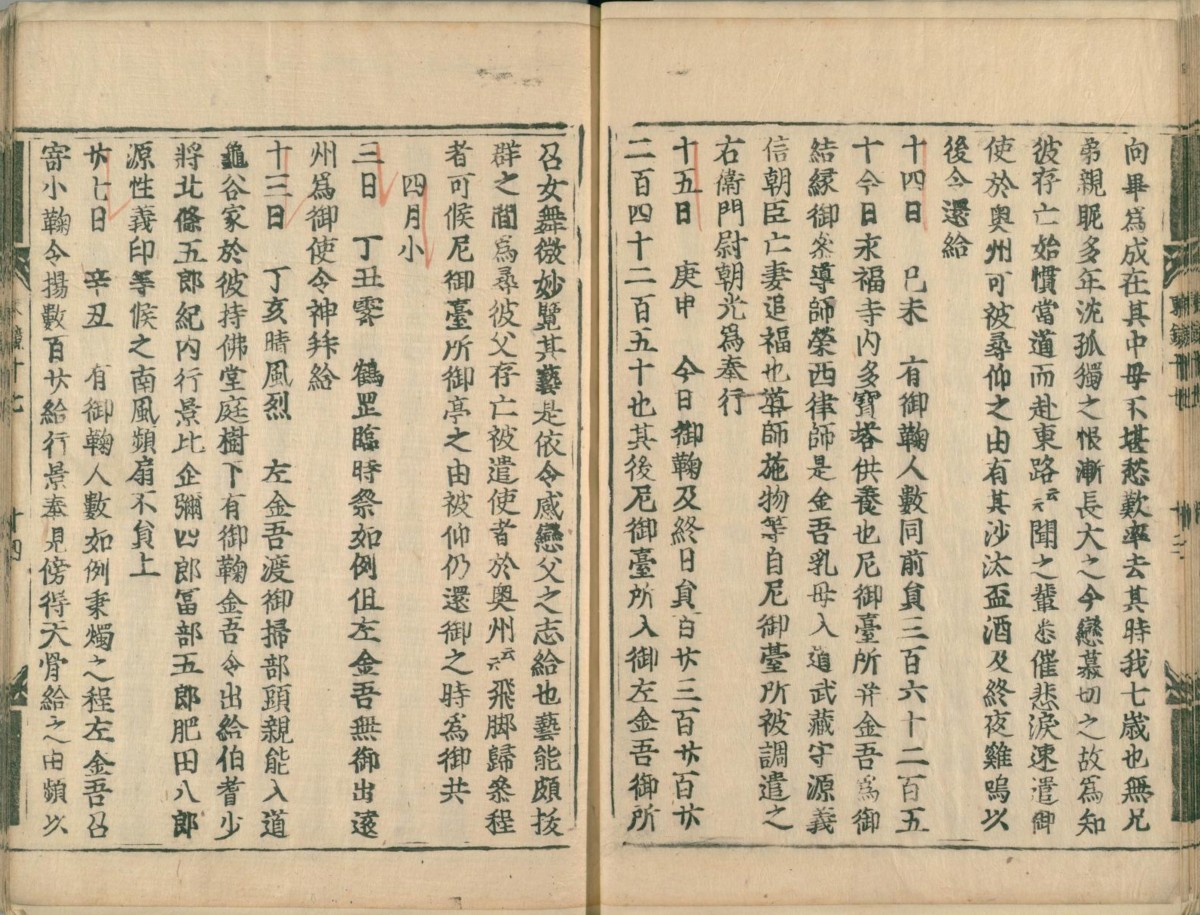 向畢爲成在其中母不堪愁歎率去其時我七歳也無兄
弟親昵多年沈孤獨之恨漸長大之今戀慕切之故爲知
彼存亡始慣當道而赴東路云云聞之輩悉催悲涙速遣御
使於奥州可被尋仰之由有其沙汰盃酒及終夜雞鳴以
後令還給
十四日　己未　有御鞠人數同前員三百六十二百五
十今日永福寺内多寶塔供養也尼御臺所并金吾爲御
結縁御參導師榮西律師是金吾乳母入道武藏守源義
信朝臣亡妻追福也導師施物等自尼御臺所被調遣之
右衛門尉朝光爲奉行
十五日　庚申　今日御鞠及終日員百廿三百廿百廿
二百四十二百五十也其後尼御臺所入御左金吾御所
召女舞微妙覽其藝是依令感戀父之志給也藝能頗抜
群之間爲尋彼父存亡被遣使者於奥州云云飛脚歸參程
者可候尼御臺所御亭之由被仰仍還御之時爲御共
四月小
三日　丁丑霽　鶴罡臨時祭如例但左金吾無御出遠
州爲御使令神拜給
十三日　丁亥時風烈　左金吾渡御掃部頭親能入道
龜谷家於彼持佛堂庭樹下有御鞠金吾令出給伯耆少
將北條五郎紀内行景比企彌四郎冨部五郎肥田八郎
源性義印等候之南風頻扇不員上
廿七日　辛丑　有御鞠人數如例秉燭之程左金吾召
寄小鞠令揚數百廿給行景奉見傍得天骨給之由頻以
十七
十四